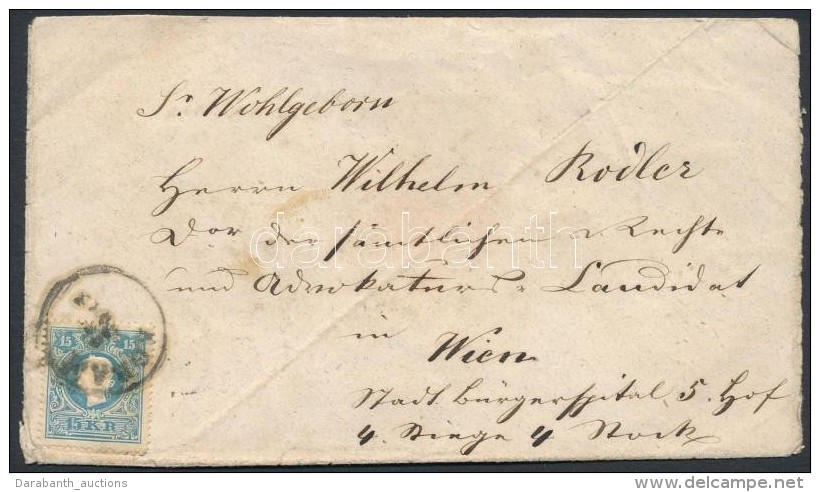 Sr. Wohlgeborn
Herrn Wilhelm Rodler
Dor der sämtlichen Rechte
und Advokaturs-Candidat
in
Wien
Stadt Bürgerspital 5. Hof
4 Stiege 4 Stock
15 15
15 KR
darabanth
Darabanth_auctions
www.delcampe.net